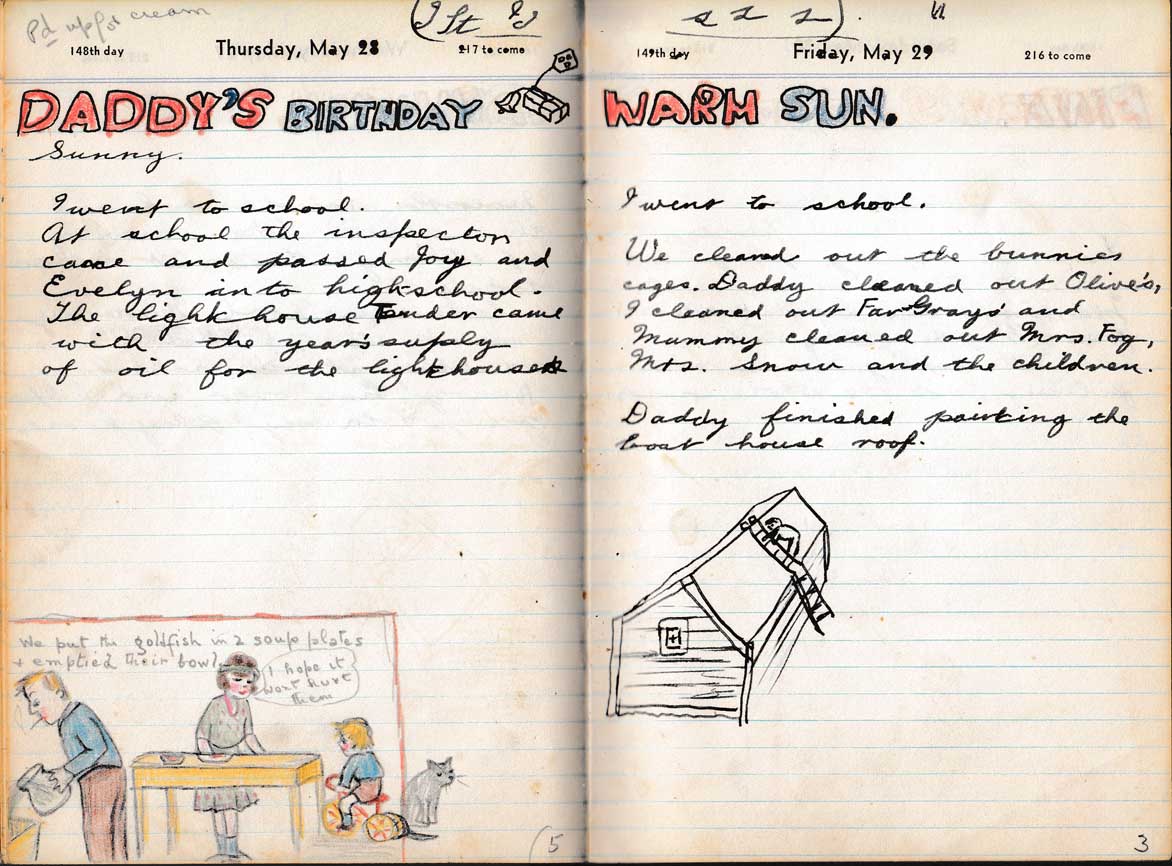 Pd up for cream
148th day
Thursday, May 28
217 to come
DADDY'S BIRTHDAY
Sunny.
I went to school.
At school the inspector
came and passed Joy and
Evelyn into highschool.
The light house Tender came
with the year's supply
of oil for the lighthouse
We put the goldfish in 2 soup plates
+ emptied their bowl
I hope it
wont hurt
them
5
149th day
Friday, May 29
216 to come
WARM SUN.
I went to school.
We cleaned out the bunnies
cages. Daddy cleaned out Olive's,
I cleaned out Far Grays' and
Mummy cleaned out Mrs. Fog,
Mrs. Snow and the children.
Daddy finished painting the
boat house roof.
3